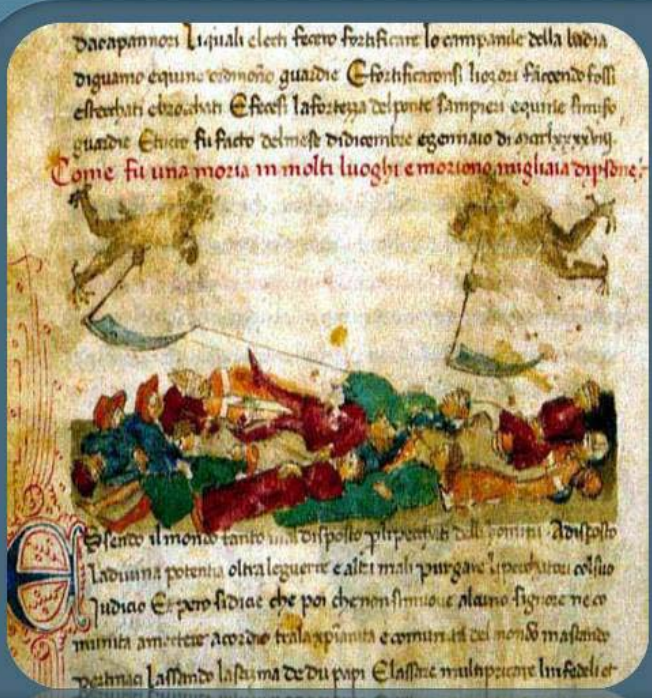 Dacapannori Liquali electi fecero fortificare lo campanile della badia
diguamo equine guardie Efortificaronsi faccendo fossi
Efecesi Lafortezza del ponte Sampieri equine
guardie Etucto fu facto delmese didicembre egennaio di
Come fu una moria in molti luoghi e moriono migliaia dipsone
Essendo il mondo tanto mal disposto plipecchati delli homini Adisposto
Ladiuina potentia oltra leguerre e altri mali purgare Lipecchatori colsuo
Judicio Et pero sidice che poi chenonsimuoue alcuno signore neco
munita amectere acordio tralaxpianita e comunita del mondo mastando
pertinaci Lassando lascisma de du papi Elassare multipricare linfedeli et